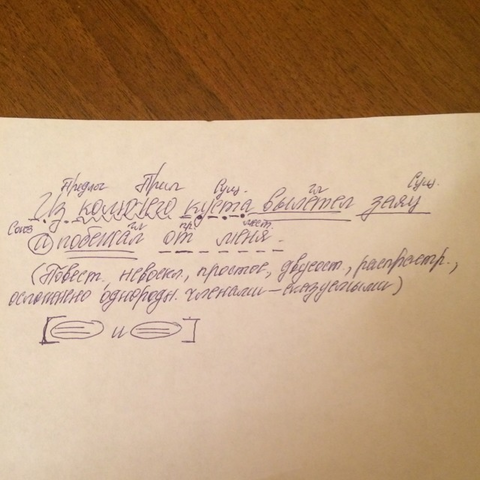 Предлог Прил Сущ. гл Сущ.
Из колючего куста вылетел заяц
Союз гл пр. мест.
и побежал от меня.
(Повест., невоскл, простое, двусост., распростр.,
осложнено однородн. членами - сказуемыми)
[ и ]